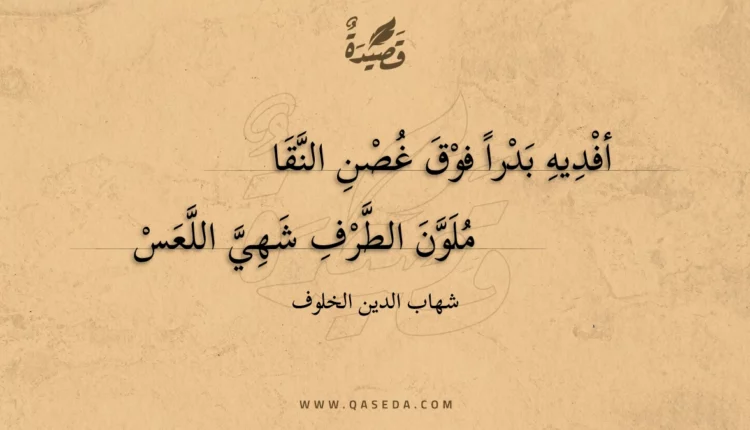 قَصِيدَةٌ
أفْدِيهِ بَدْراً فوْقَ غُصْنِ النَّقَا
مُلَوَّنَ الطَّرْفِ شَهِيَّ اللَّعَسْ
شهاب الدين الخلوف
WWW.QASEDA.COM